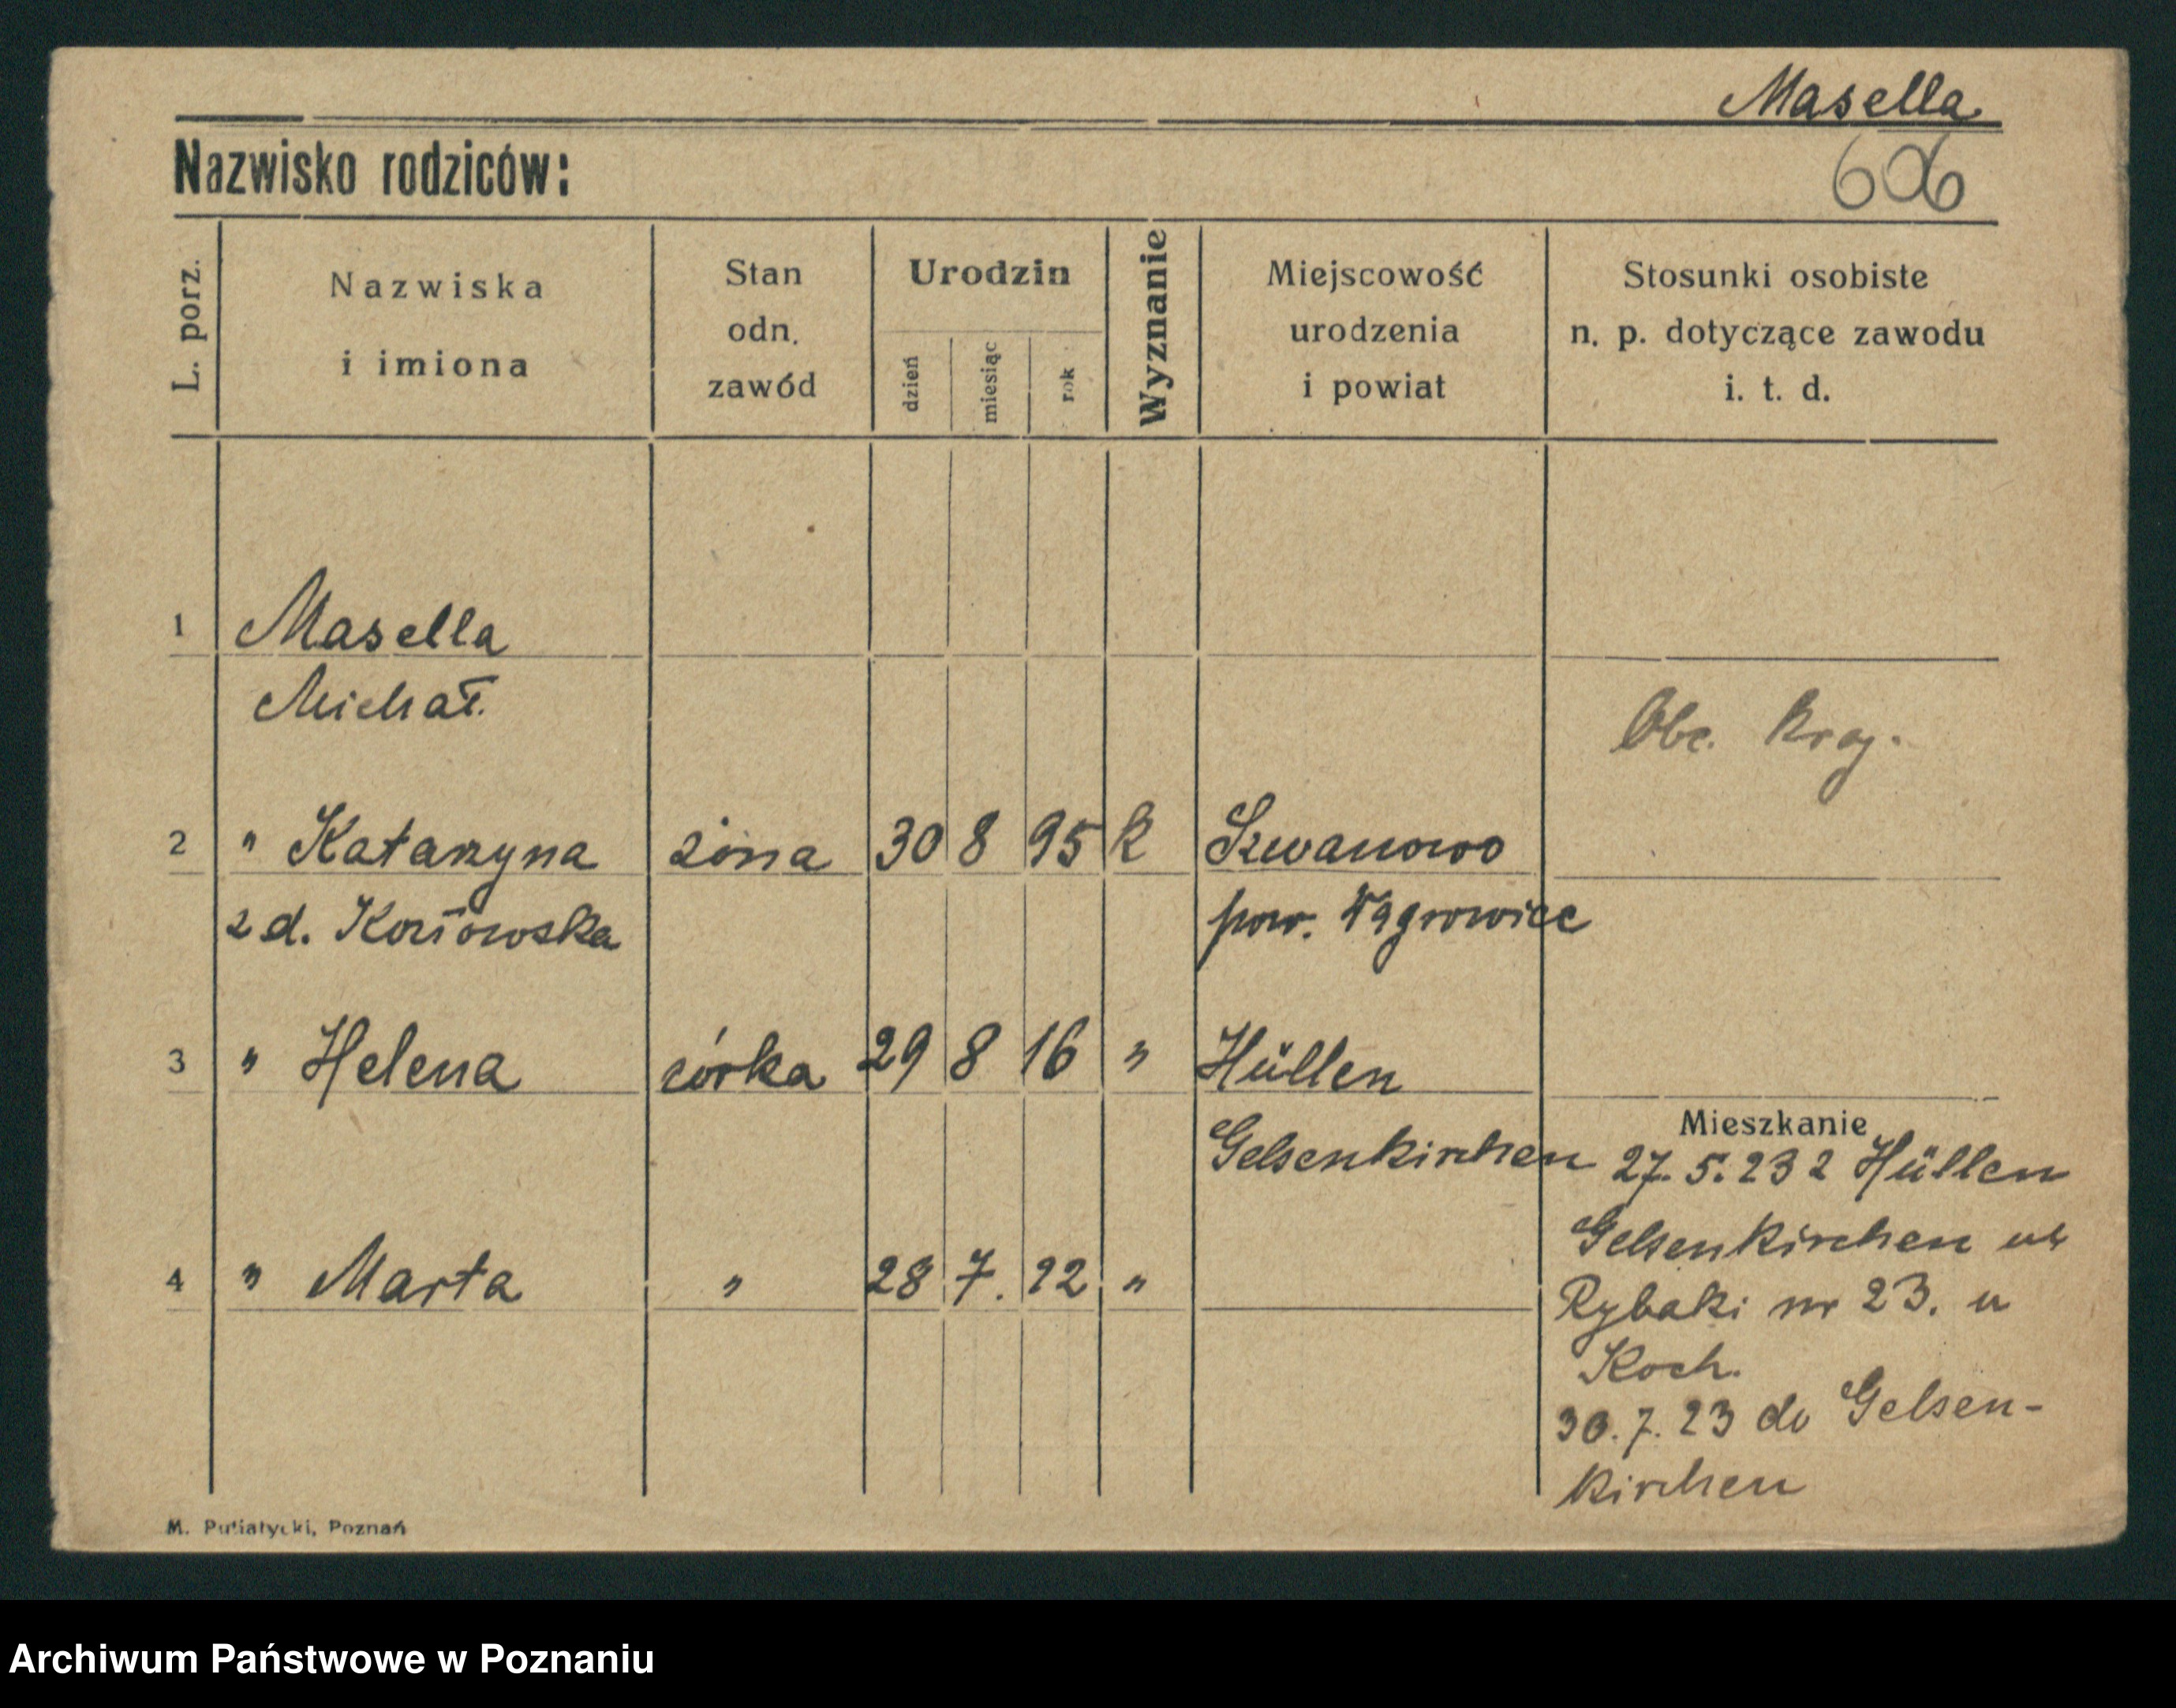 Masella
606
Nazwisko rodziców:
L. porz.
Nazwiska
i imiona
Stan
odn.
zawód
Urodzin
dzień
miesiąc
rok
Wyznanie
Miejscowość
urodzenia
i powiat
Stosunki osobiste
n. p. dotyczące zawodu
i. t. d.
1 Masella
Michał.
Obc. Kraj.
2 " Katarzyna żona 30 8 95 k
pow. Wągrowiec
z d. Kozłowska
3 " Helena córka 29 8 16 " Hüllen
Gelsenkirchen
4 " Marta " 28 7. 22 "
Mieszkanie
27. 5. 23 z Hüllen
Gelsenkirchen
Rybaki nr 23. u
Koch.
30. 7. 23 do Gelsen-
kirchen
M. Putiatycki, Poznań
Archiwum Państwowe w Poznaniu